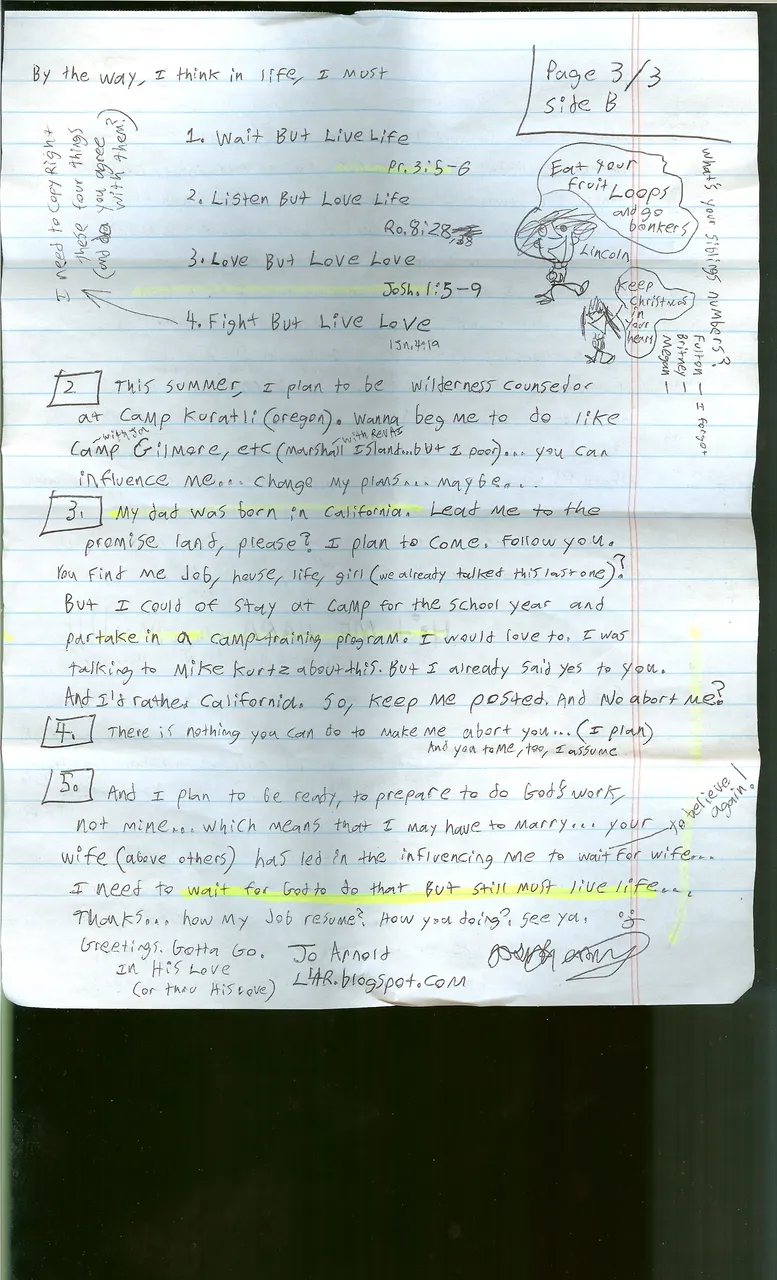 Page 3/3
Side B
By the way, I think in life, I must
1. Wait But Live Life
Pr. 3:5-6
2. Listen But Love Life
Ro. 8:28,
3. Love But Love Love
Josh. 1:5-9
4. Fight But Live Love
1 Jn. 4:19
I need to CopyRight
these four things
(and do you agree
with them?)
Eat your
fruit Loops
and go
bonkers
Lincoln
Keep
Christmas
in
your
heart
What's your siblings numbers?
Fulton — I forgot
Britney —
Megan —
2. This summer, I plan to be wilderness counselor
at Camp Kuratli (oregon). Wanna beg me to do like
with Jon with Rev AI
Camp Gilmore, etc (Marshall Island...but I poor)... you can
influence me... change my plans... maybe...
3. My dad was born in California. Lead me to the
promise land, please? I plan to come. Follow you.
You find me Job, house, life, girl (we already talked this last one)?
But I could of stay at camp for the school year and
partake in a camp-training program. I would love to. I was
talking to Mike Kurtz about this. But I already said yes to you.
And I'd rather California. So, keep me posted. And No abort me?
4. There is nothing you can do to make me abort you... (I plan)
And you to me, too, I assume
5. And I plan to be ready, to prepare to do God's work,
not mine... which means that I may have to marry... your
wife (above others) has led in the influencing me to wait for wife...
to believe
again!
I need to wait for God to do that But still must live life...
Thanks... how my Job resume? How you doing? See ya.
Greetings. Gotta Go.
In His Love
(or thru His Love)
Jo Arnold
L4R.blogspot.com